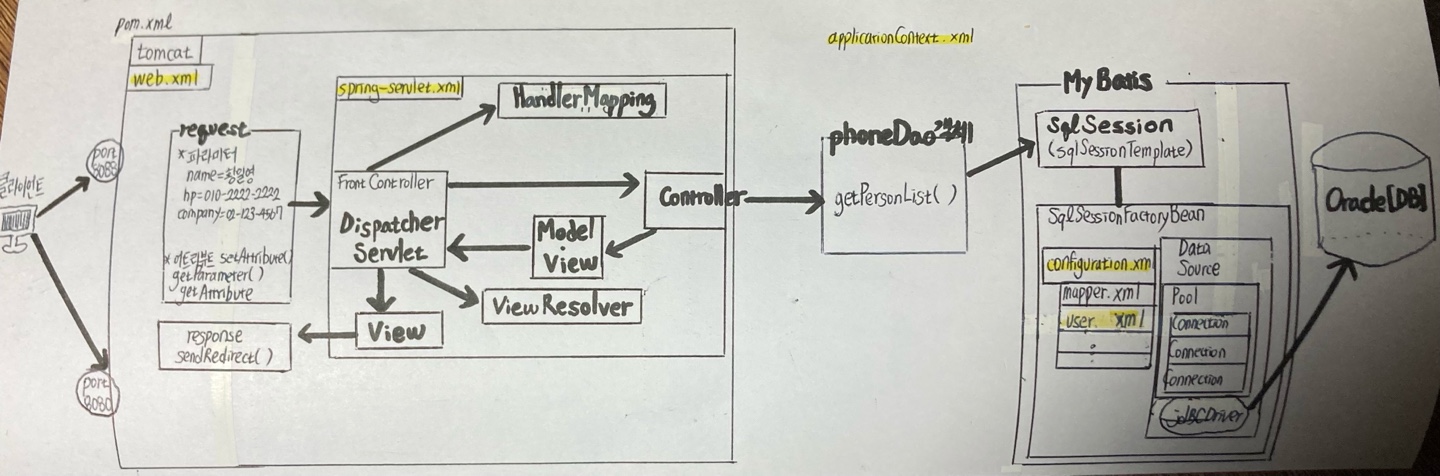 pom.xml
tomcat
web.xml
클라이언트
port
8088
port
8080
request
*파라미터
hp=010-2222-2222
company=02-123-4567
*어트리뷰트 setAttribute()
getParameter()
getAttribute
response
sendRedirect()
spring-servlet.xml
HandlerMapping
Front Controller
Dispatcher
Servlet
Model
View
ViewResolver
View
Controller
applicationContext.xml
phoneDao객체
getPersonList()
MyBatis
SqlSession
(sqlSessionTemplate)
SqlSessionFactoryBean
configuration.xml
mapper.xml
user. xml
:
Data
Source
Pool
Connection
Connection
Connection
JDBCDriver
Oracle[DB]